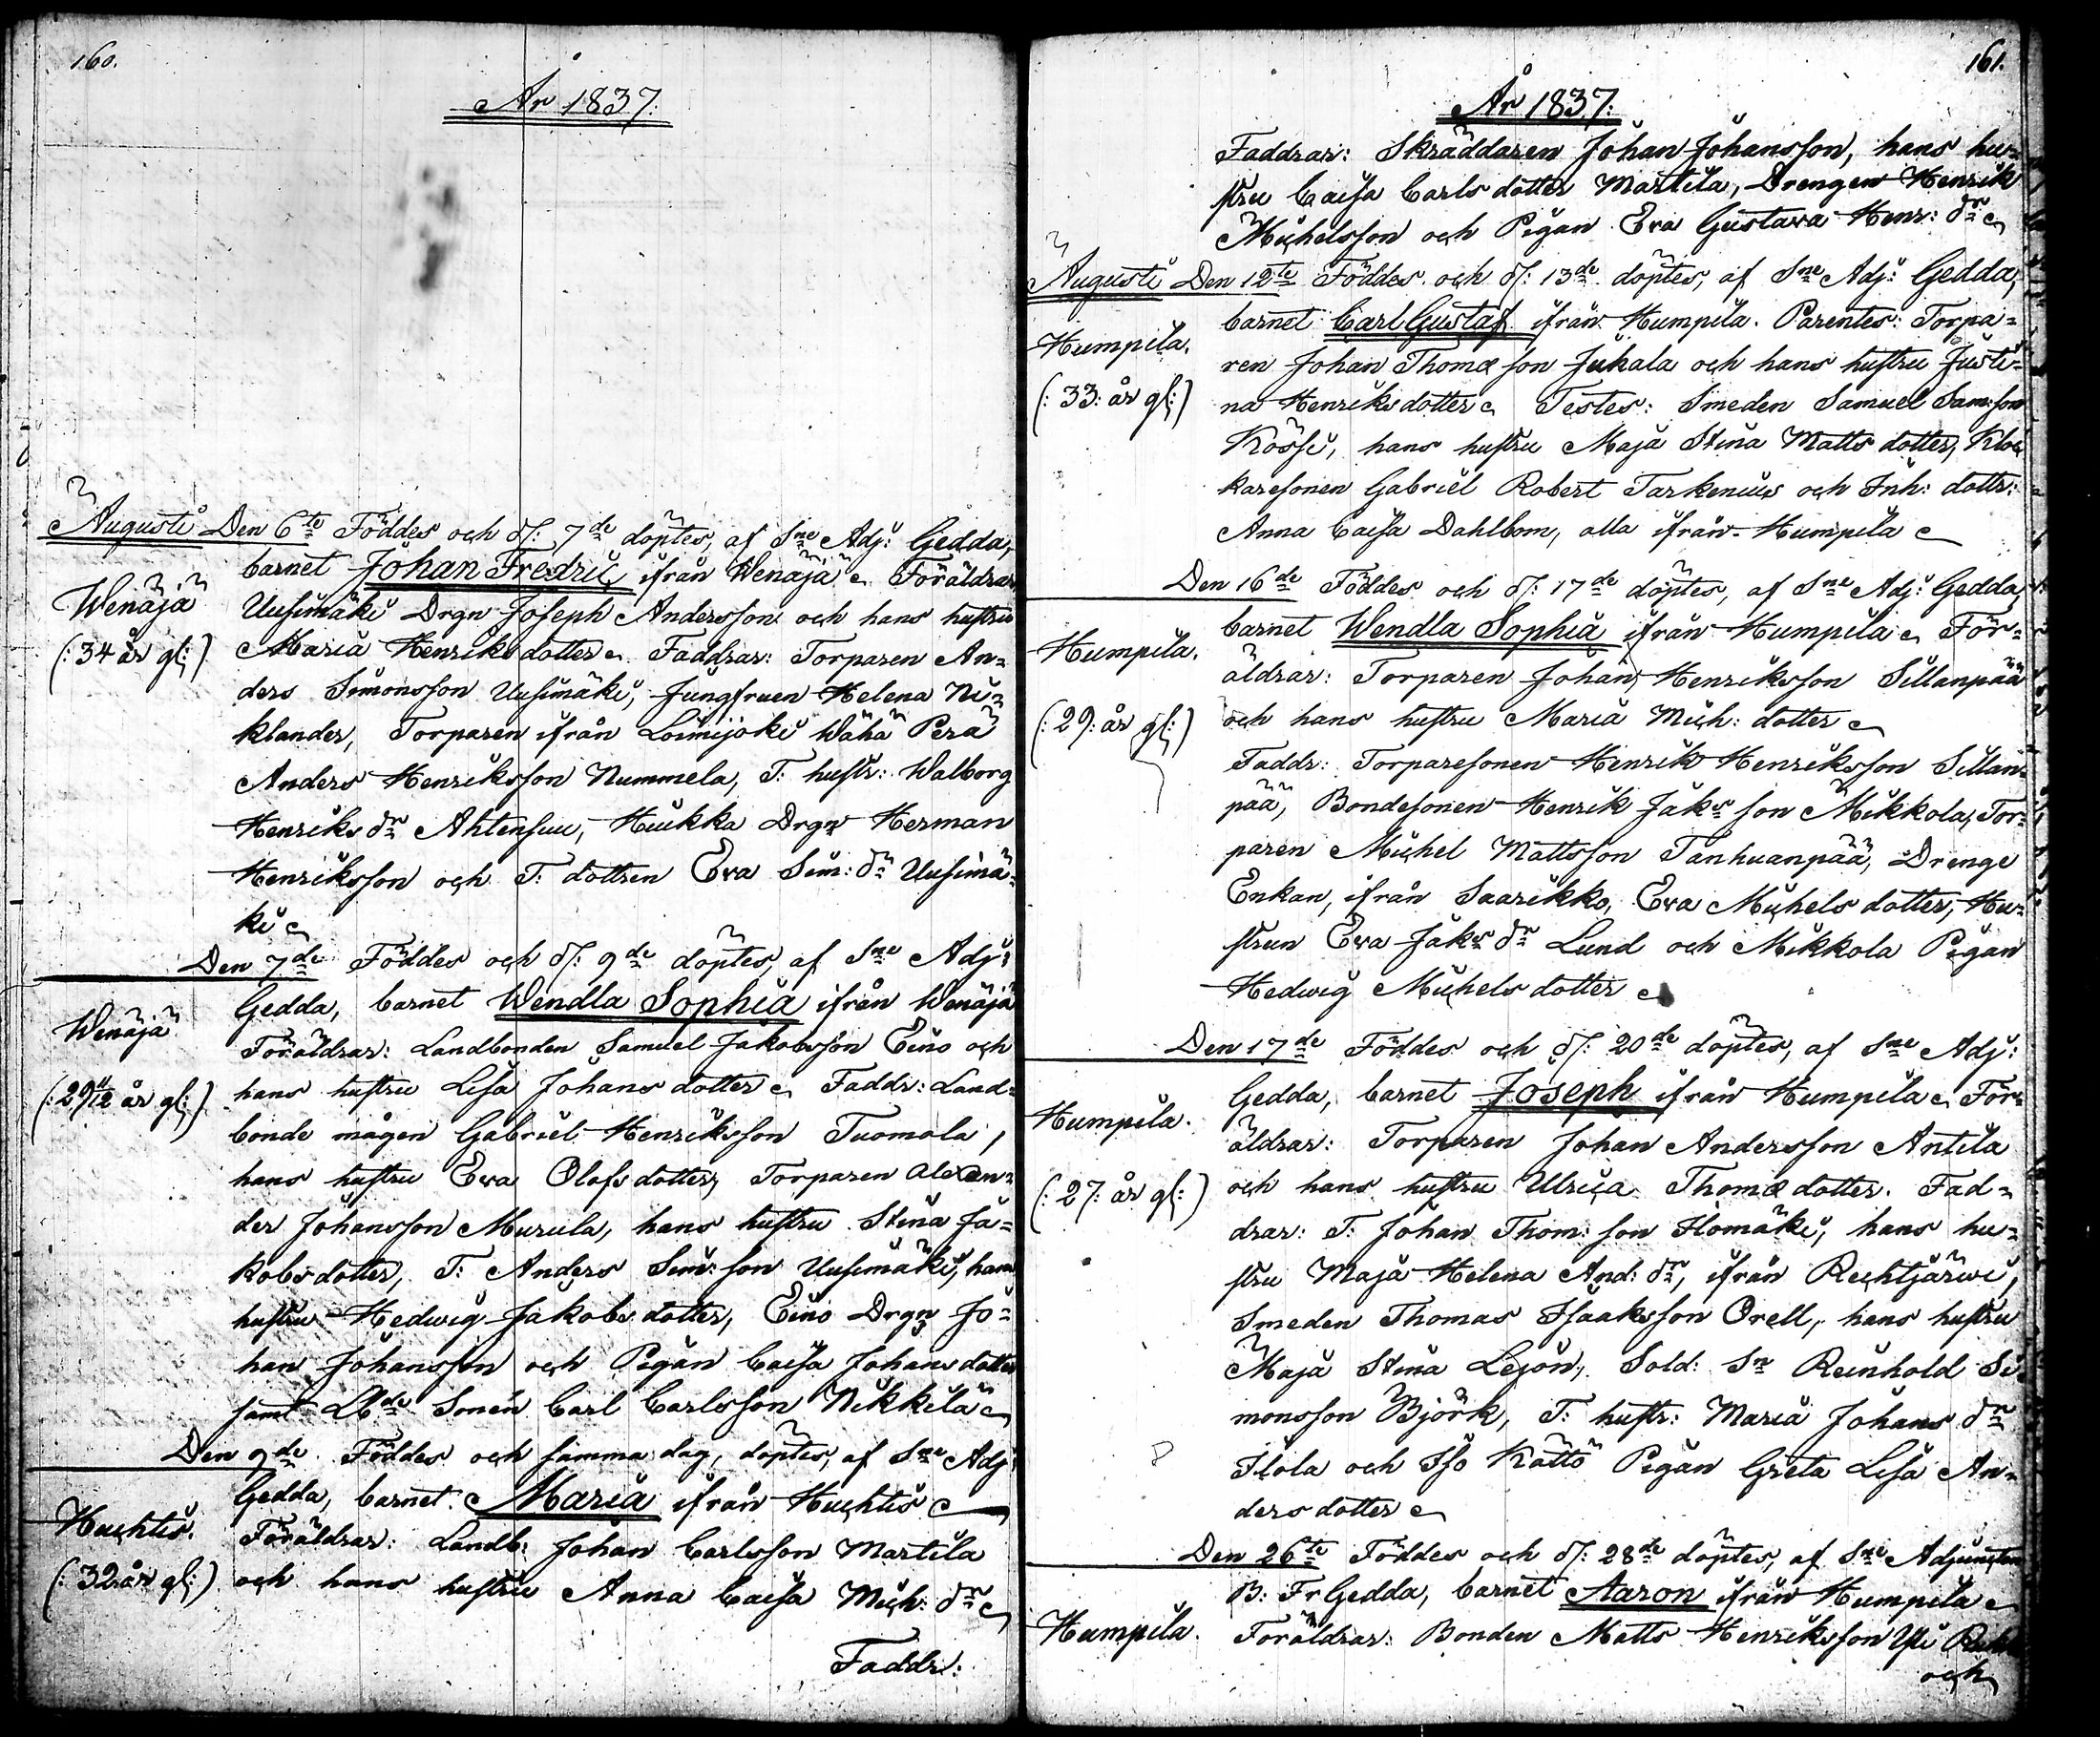 160.
År 1837.
Augusti Den 6te Föddes och d: 7de döptes, af Sne Adj: Gedda,
barnet Johan Fredric, ifrån Wenäjä. Föräldrar
Wenäjä Uusimäki Drgn Joseph Andersson och hans hustru
(: 34 år gl:) Maria Henriksdotter. Faddrar: Torparen An=
ders Simonsson Uusimäki, Jungfruen Helena Ni=
klander, Torparen ifrån Loimijoki Wähä Perä
Anders Henriksson Nummela, T: hustr: Walborg
Henriks dr Ahtensuu, Huikka Drgn Herman
Henriksson och T: dottren Eva Sim: dr Uusimä=
ki
Den 7de Föddes och d: 9de döptes, af Sne Adj:
Gedda, barnet Wendla Sophia ifrån Wenäjä
Wenäjä Föräldrar: Landbonden Samuel Jakobsson Eino och
(: 29 11/12 år gl:) hans hustru Lisa Johans dotter. Faddr: Land=
bonde mågen Gabriel Henriksson Tuomola,
hans hustru Eva Olofs dotter, Torparen Alexan=
der Johansson Murula, hans hustru Stina Ja=
kobs dotter, T: Anders Sim: son Uusimäki, hans
hustru Hedwig Jakobs dotter, Eino Drgn Jo=
han Johansson och Pigan Caisa Johans dotter
samt Sonen Carl Carlsson Nikkilä
Den 9de Föddes och samma dag, döptes, af Sne Adj:
Gedda, barnet Maria ifrån Huhtis
Huhtis. Föräldrar: Landb: Johan Carlsson Martila
(: 32 år gl:) och hans hustru Anna Caisa Mich: dr
Faddr:
161.
År 1837:
Faddrar: Skräddaren Johan Johansson, hans hu=
stru Caisa Carls dotter Martila, Drengen Henrik
Michelsson och Pigan Eva Gustava Henr: dr
Augusti Den 12te Föddes och d: 13de döptes, af Sne Adj: Gedda,
barnet Carl Gustaf ifrån Humpila. Parentes: Torpa=
Humpila. ren Johan Thomæ son Jukala och hans hustru Justi=
(: 33: år gl:) na Henriksdotter. Testes: Smeden Samuel Sam: son
Kössi, hans hustru Maja Stina Matts dotter, Kloc
karesonen Gabriel Robert Tarkenius och Inh: dottr:
Anna Caisa Dahlbom, alla ifrån Humpila
Den 16de Föddes och d: 17de döptes, af Sne Adj: Gedda,
barnet Wendla Sophia ifrån Humpila. För=
Humpila. äldrar: Torparen Johan Henriksson Sillanpää
(: 29: år gl:) och hans hustru Maria Mich: dotter
Faddr: Torparesonen Henrik Henriksson Sillan=
pää, Bondesonen Henrik Jaks son Mikkola, Tor=
paren Michel Mattsson Tanhuanpää, Drenge
Enkan, ifrån Saarikko, Eva Michels dotter, Hu=
strun Eva Jaks dr Lund och Mikkola Pigan
Hedwig Michels dotter
Den 17de Föddes och d: 20de döptes, af Sne Adj:
Gedda, barnet Joseph ifrån Humpila. För=
Humpila. äldrar: Torparen Johan Andersson Antila
(: 27: år gl:) och hans hustru Ulrica Thomæ dotter. Fad=
drar: T: Johan Thom: son Ilomäki, hans hu=
stru Maja Helena And: dr, ifrån Rechtjärwi,
Smeden Thomas Isaaksson Orell, hans hustru
Maja Stina Lejon, Sold: Sn Reinhold Si=
monsson Björk, T: hustr: Maria Johans dr
Ilola och Iso Kättö Pigan Greta Lisa An=
ders dotter
Den 26te Föddes och d: 28de döptes, af Sne Adjuncten
B: Fr Gedda, barnet Aaron ifrån Humpila
Humpila. Föräldrar: Bonden Matts Henriksson Yli
och